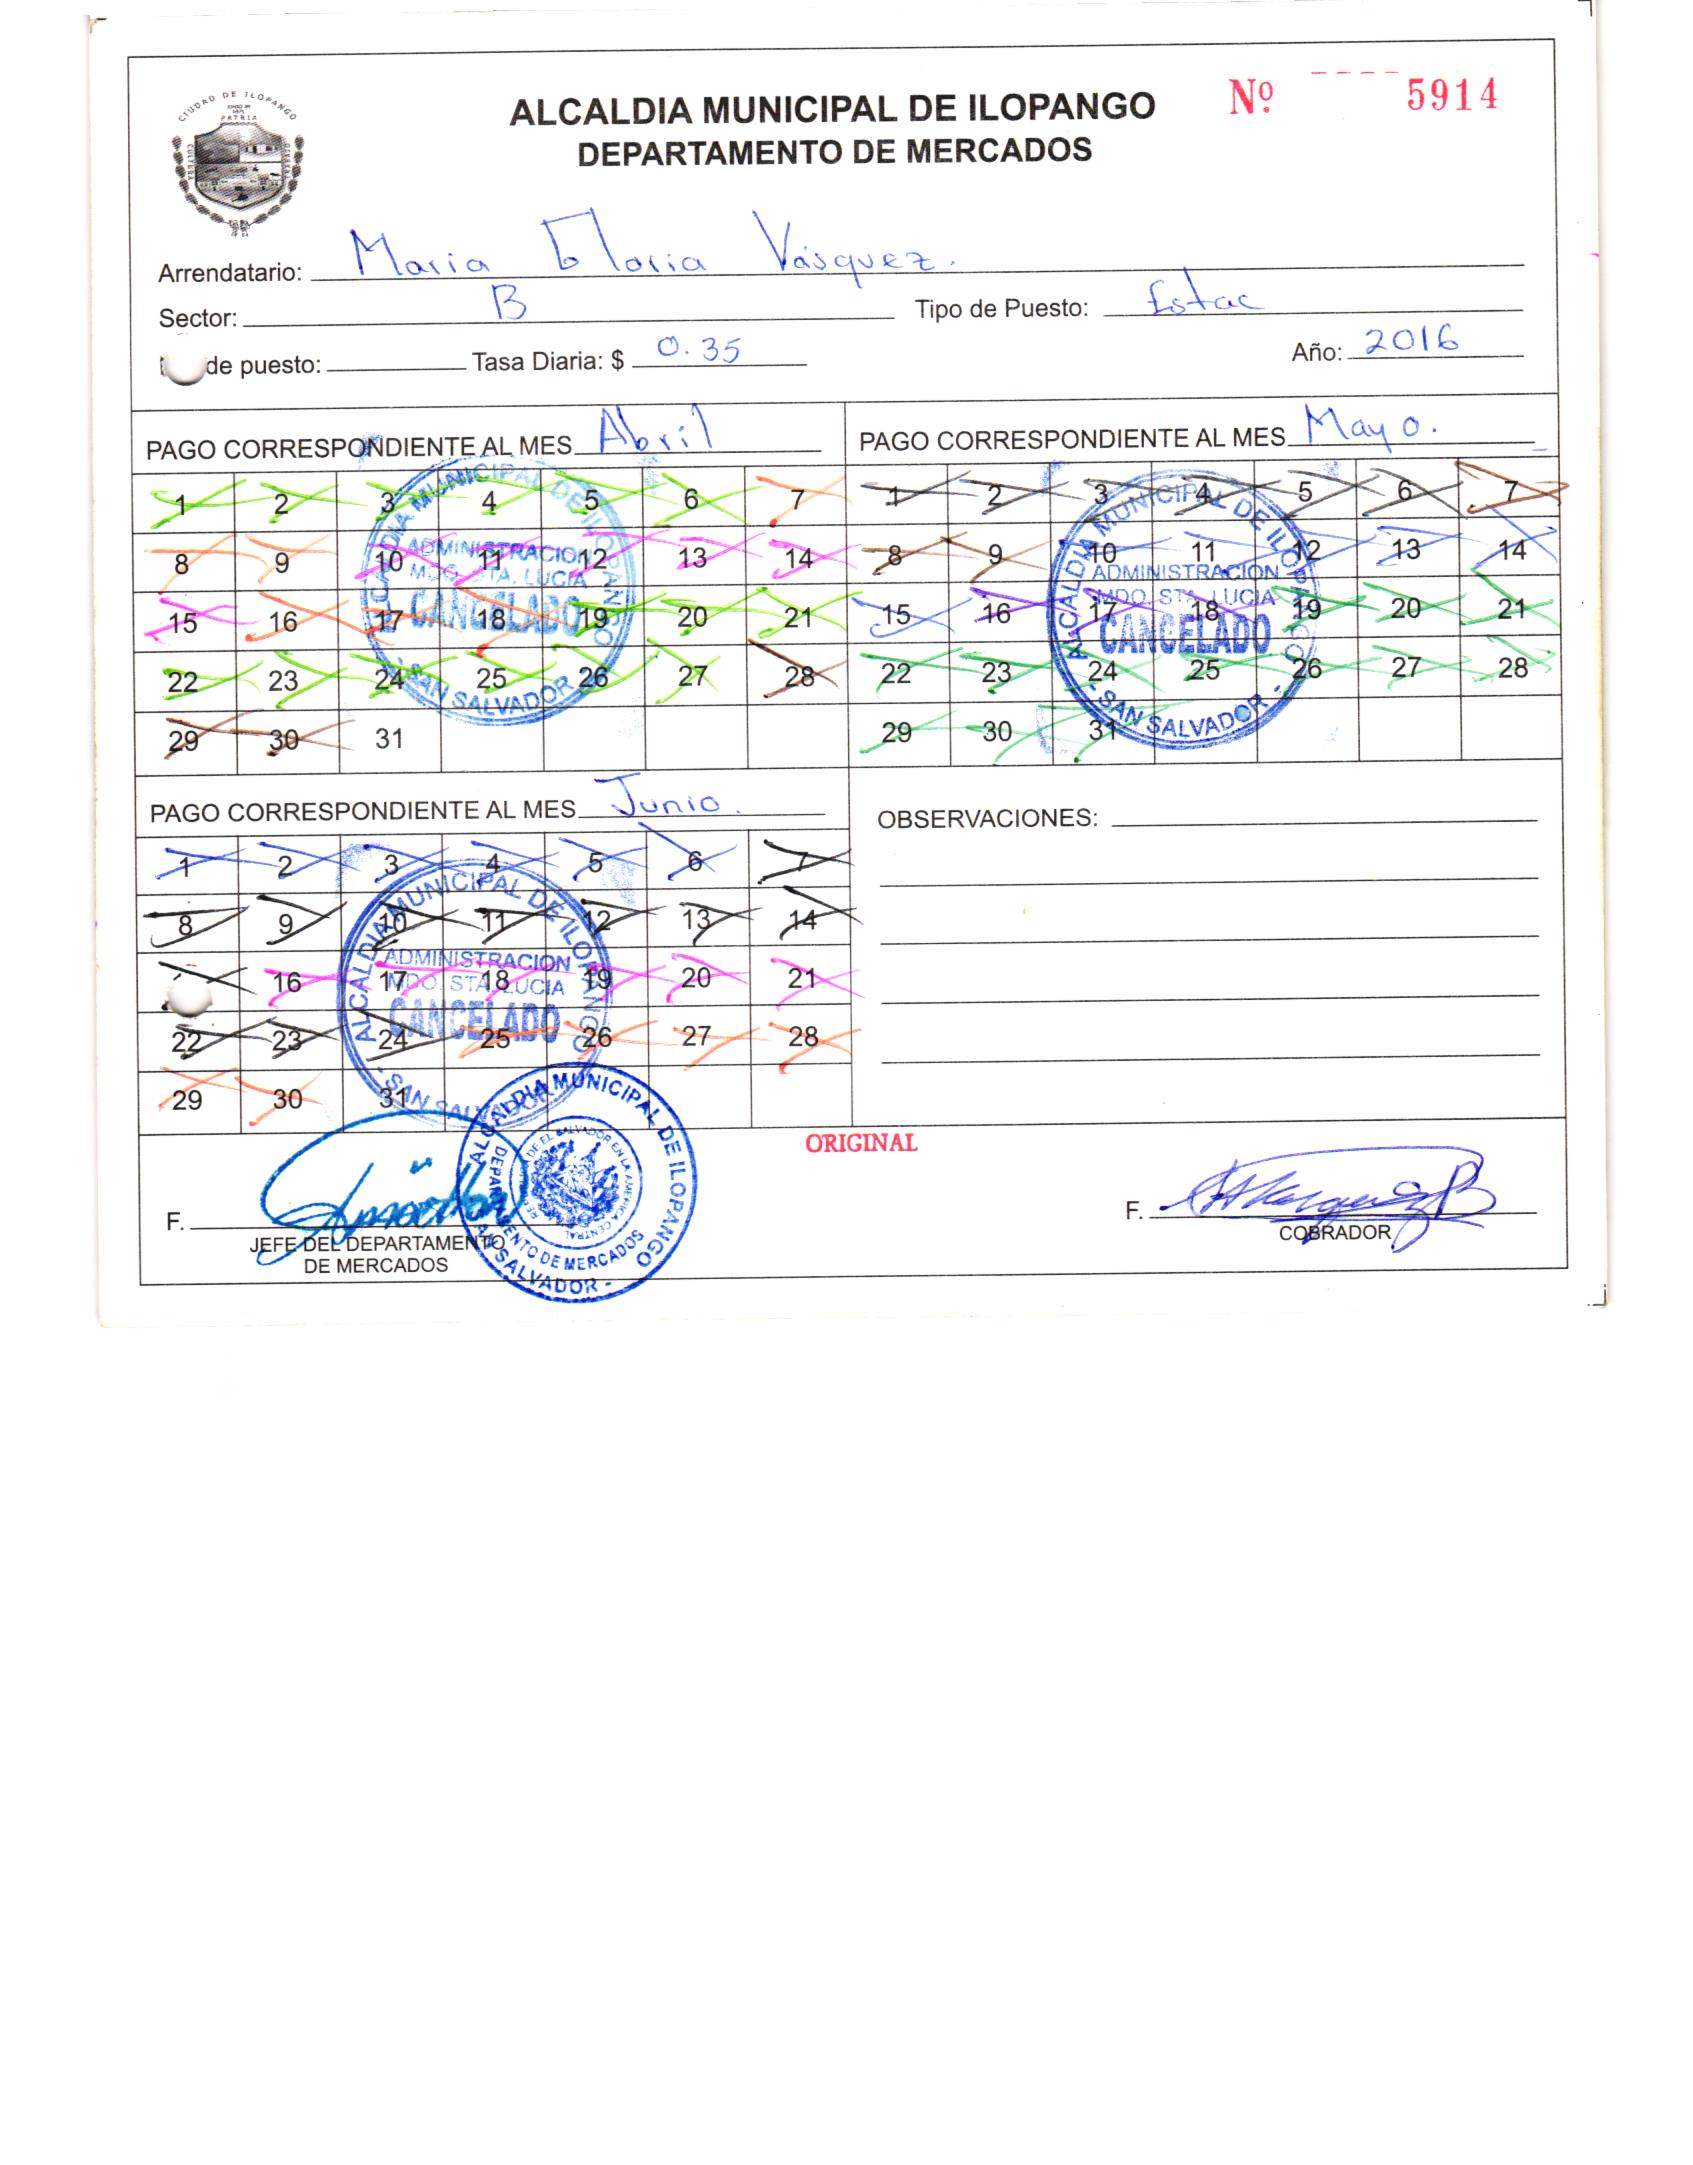 CIUDAD DE ILOPANGO
PATRIA
CULTURA
ALCALDIA MUNICIPAL DE ILOPANGO
DEPARTAMENTO DE MERCADOS
Nº 5914
Arrendatario: Maria Gloria Vásquez.
Sector: B Tipo de Puesto: Estac
de puesto: Tasa Diaria: $ 0.35 Año: 2016
PAGO CORRESPONDIENTE AL MES Abril
1 2 3 4 5 6 7
8 9 10 11 12 13 14
15 16 17 18 19 20 21
22 23 24 25 26 27 28
29 30 31
ALCALDIA MUNICIPAL DE ILOPANGO
ADMINISTRACION
MDO. STA. LUCIA
CANCELADO
- SAN SALVADOR -
PAGO CORRESPONDIENTE AL MES Mayo.
1 2 3 4 5 6 7
8 9 10 11 12 13 14
15 16 17 18 19 20 21
22 23 24 25 26 27 28
29 30 31
ALCALDIA MUNICIPAL DE ILOPANGO
ADMINISTRACION
MDO. STA. LUCIA
CANCELADO
- SAN SALVADOR -
PAGO CORRESPONDIENTE AL MES Junio.
1 2 3 4 5 6 7
8 9 10 11 12 13 14
16 17 18 19 20 21
22 23 24 25 26 27 28
29 30 31
ALCALDIA MUNICIPAL DE ILOPANGO
ADMINISTRACION
MDO. STA. LUCIA
CANCELADO
- SAN SALVADOR -
OBSERVACIONES:
ORIGINAL
F.
JEFE DEL DEPARTAMENTO
DE MERCADOS
ALCALDIA MUNICIPAL DE ILOPANGO
DEPARTAMENTO DE MERCADOS
SAN SALVADOR -
DE EL SALVADOR EN LA AMERICA CENTRAL
F.
COBRADOR